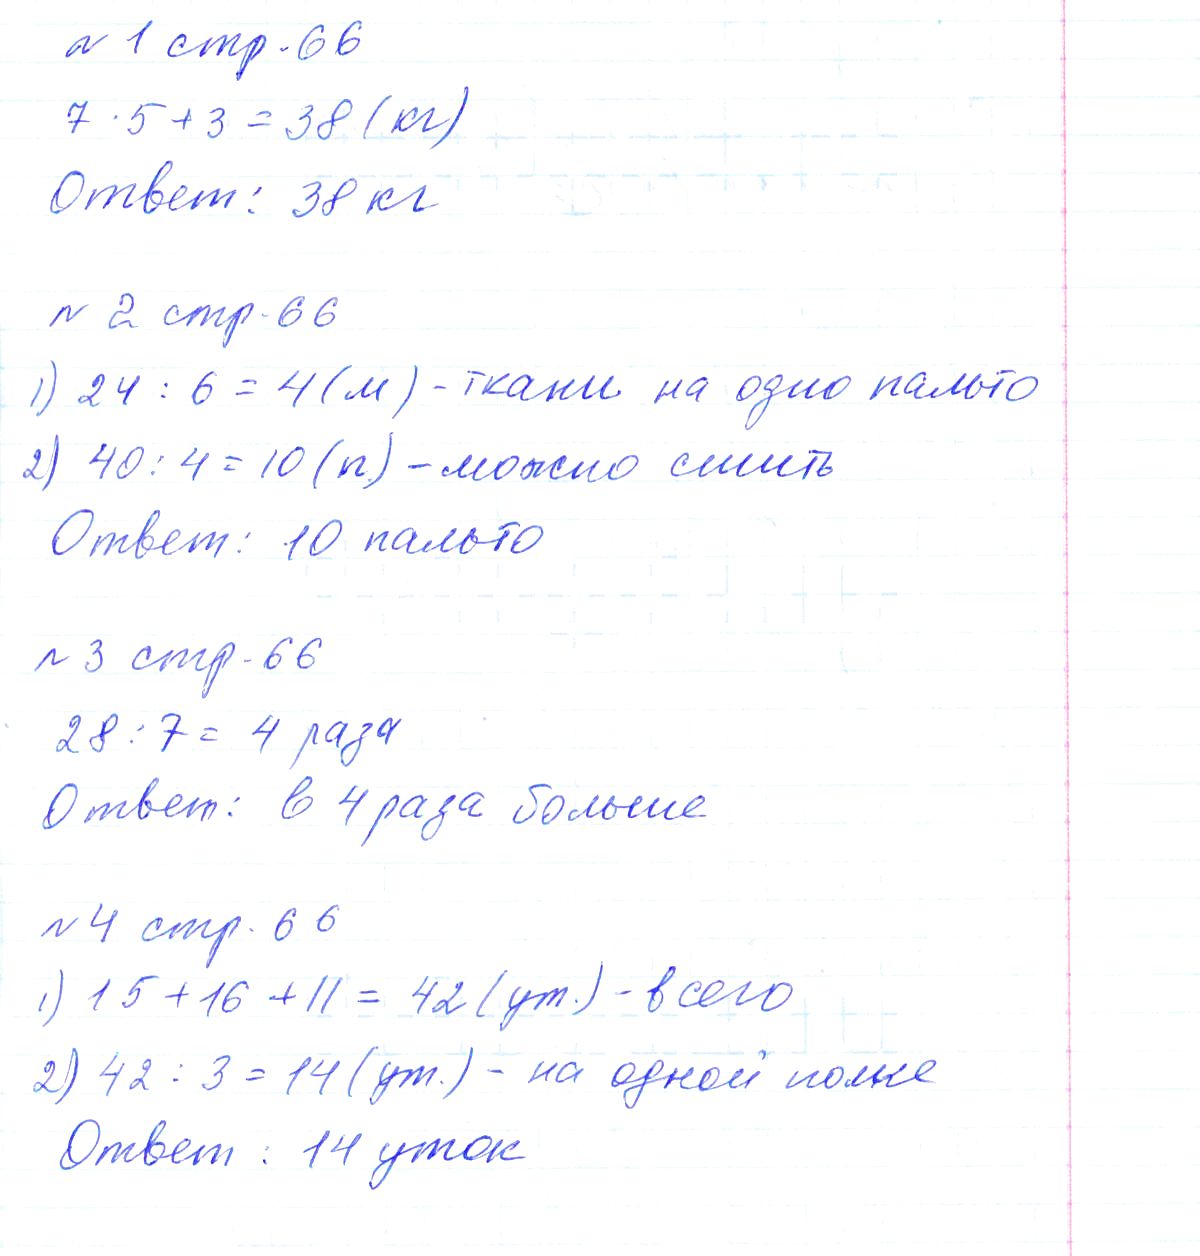 № 1 стр. 66
7 · 5 + 3 = 38 (кг)
Ответ: 38 кг
№ 2 стр. 66
1) 24 : 6 = 4 (м) - ткани на одно пальто
2) 40 : 4 = 10 (п.) - можно сшить
Ответ: 10 пальто
№ 3 стр. 66
28 : 7 = 4 раза
Ответ: в 4 раза больше
№ 4 стр. 66
1) 15 + 16 + 11 = 42 (ут.) - всего
2) 42 : 3 = 14 (ут.) - на одной полке
Ответ: 14 уток